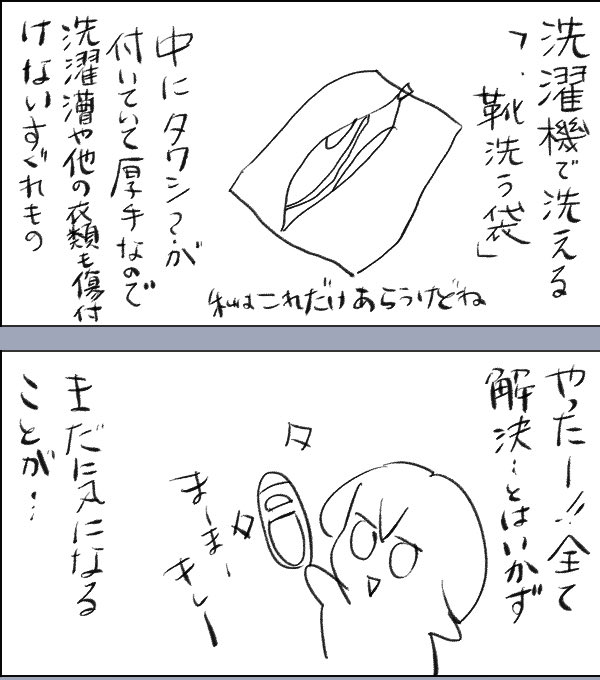 洗濯機で洗える
「靴洗う袋」
中にタワシ?が
付いていて厚手なので
洗濯漕や他の衣類も傷付
けないすぐれもの
私はこれだけあらうけどね
やったー!!全て
解決…とはいかず
まーまー
キレー
まだに気になる
ことが…